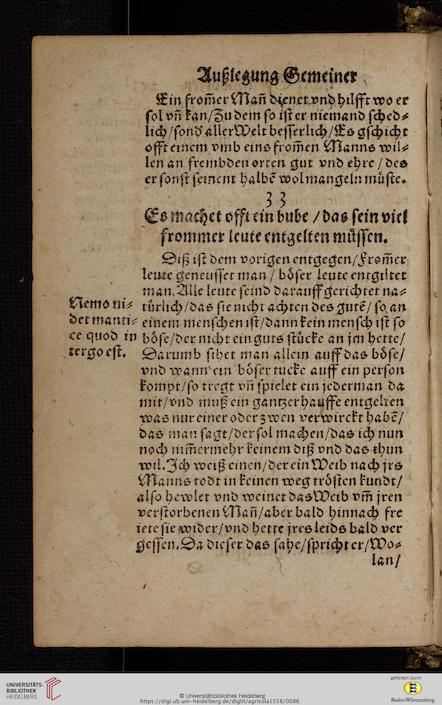 Außlegung Gemeiner
Ein from̃er Man̄ dienet vnd hilfft wo er
sol vn̄ kan/Zu dem so ist er niemand sched⸗
lich/sond' aller Welt besserlich/Es gschicht
offt einem vmb eins from̃en Manns wil⸗
len an frembden orten gut vnd ehre/des
er sonst seinent halbē wol mangeln müste.
33
Es machet offt ein bube/das sein viel
frommer leute entgelten müssen.
Diß ist dem vorigen entgegen/From̃er
leute geneusset man/böser leute entgiltet
man. Alle leute seind darauff gerichtet na⸗
türlich/das sie nicht achten des gutē/so an
einem menschen ist/dann kein mensch ist so
böse/der nicht ein guts stücke an jm hette/
Darumb sihet man allein auff das böse/
vnd wann ein böser tucke auff ein person
kompt/so tregt vn̄ spielet ein jederman da
mit/vnd muß ein gantzer hauffe entgelten
was nur einer oder zwen verwirckt habē/
das man sagt/der sol machen/das ich nun
noch nim̃ermehr keinem diß vnd das thun
wil. Ich weiß einen/der ein Weib nach jrs
Manns todt in keinen weg trösten kundt/
also hewlet vnd weinet das Weib vm̃ jren
verstorbenen Man̄/aber bald hinnach fre
iete sie wider/vnd hette jres leids bald ver
gessen. Da dieser das sahe/spricht er/Wo⸗
lan/
Nemo vi⸗
det manti⸗
ce quod in
tergo est.
UNIVERSITÄTS-
BIBLIOTHEK
HEIDELBERG
© Universitätsbibliothek Heidelberg
https://digi.ub.uni-heidelberg.de/diglit/agricola1558/0086
gefördert durch
Baden-Württemberg